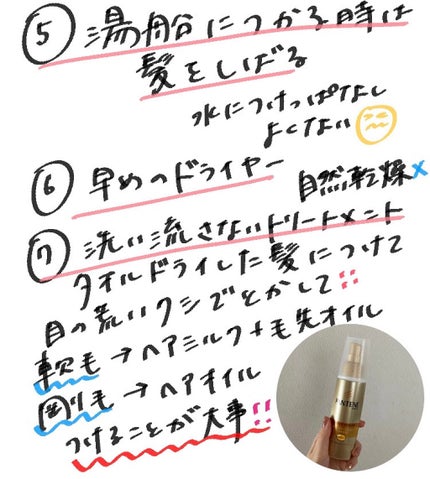 ⑤ 湯船につかる時は
髪をしばる
水につけっぱなし
よくない
⑥ 早めのドライヤー
自然乾燥×
⑦ 洗い流さないトリートメント
タオルドライした髪につけて
目の荒いクシでとかして!!
軟毛→ヘアミルク+毛先オイル
剛毛→ヘアオイル
つけることが大事!!
PANTENE